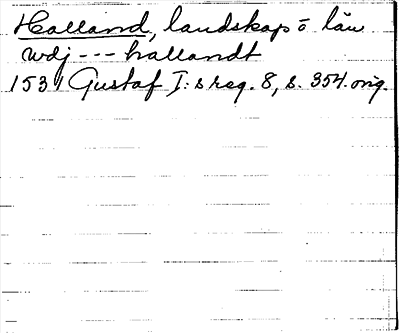 Halland, landskap o län
wdj --- hallandt
1531 Gustaf I:s reg. 8, s. 354. orig.